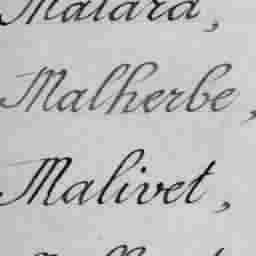 Malard,
Malherbe,
Malivet,